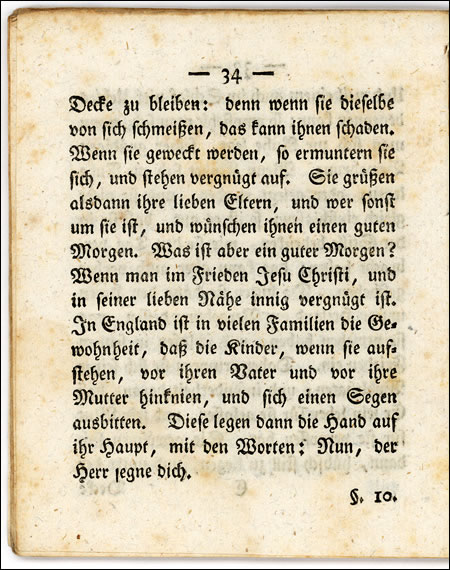 — 34 —
Decke zu bleiben: denn wenn sie dieselbe
von sich schmeißen, das kann ihnen schaden.
Wenn sie geweckt werden, so ermuntern sie
sich, und stehen vergnügt auf. Sie grüßen
alsdann ihre lieben Eltern, und wer sonst
um sie ist, und wünschen ihnen einen guten
Morgen. Was ist aber ein guter Morgen?
Wenn man im Frieden Jesu Christi, und
in seiner lieben Nähe innig vergnügt ist.
In England ist in vielen Familien die Ge-
wohnheit, daß die Kinder, wenn sie auf-
stehen, vor ihren Vater und vor ihre
Mutter hinknien, und sich einen Segen
ausbitten. Diese legen dann die Hand auf
ihr Haupt, mit den Worten: Nun, der
Herr segne dich.
§. 10.